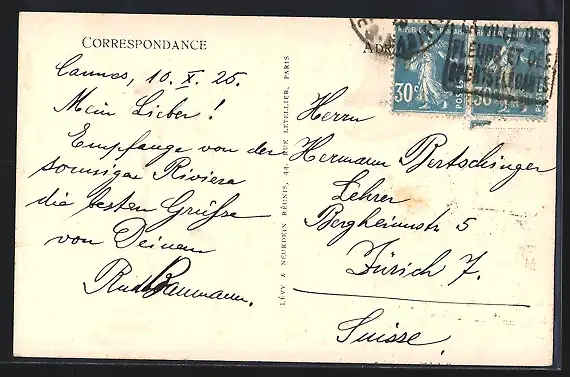 CORRESPONDANCE
Cannes, 10. X. 25.
Mein Lieber!
Empfange von der
sonnigen Riviera
die besten Grüsse
von Deinem
Baumann.
LÉVY & NEURDEIN RÉUNIS, 44, RUE LETELLIER, PARIS
RÉPUBLIQUE FRANÇAISE
30c
POSTES
30
FLEURS ET DES
SPORTS ÉLÉGANTS
Herrn
Hermann Bertschinger
Lehrer
Bergheimstr 5
Zürich 7.
Suisse.